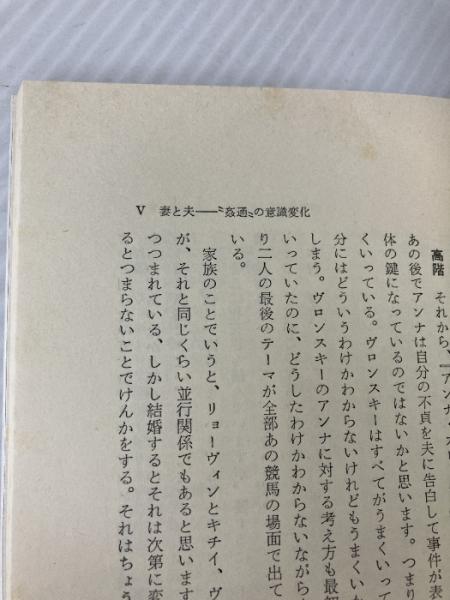 V 妻と夫――〝姦通〟の意識変化
高階 それから、『アンナ・カ
あの後でアンナは自分の不貞を夫に告白して事件が表
体の鍵になっているのではないかと思います。つまり
くいっている。ヴロンスキーはすべてがうまくいって
分にはどういうわけかわからないけれどもうまくいか
しまう。ヴロンスキーのアンナに対する考え方も最初
いっていたのに、どうしたわけかわからないながら
り二人の最後のテーマが全部あの競馬の場面で出て
いる。
家族のことでいうと、リョーヴィンとキチイ、ヴ
が、それと同じくらい並行関係でもあると思います
つつまれている、しかし結婚するとそれは次第に変
るとつまらないことでけんかをする。それはちょう